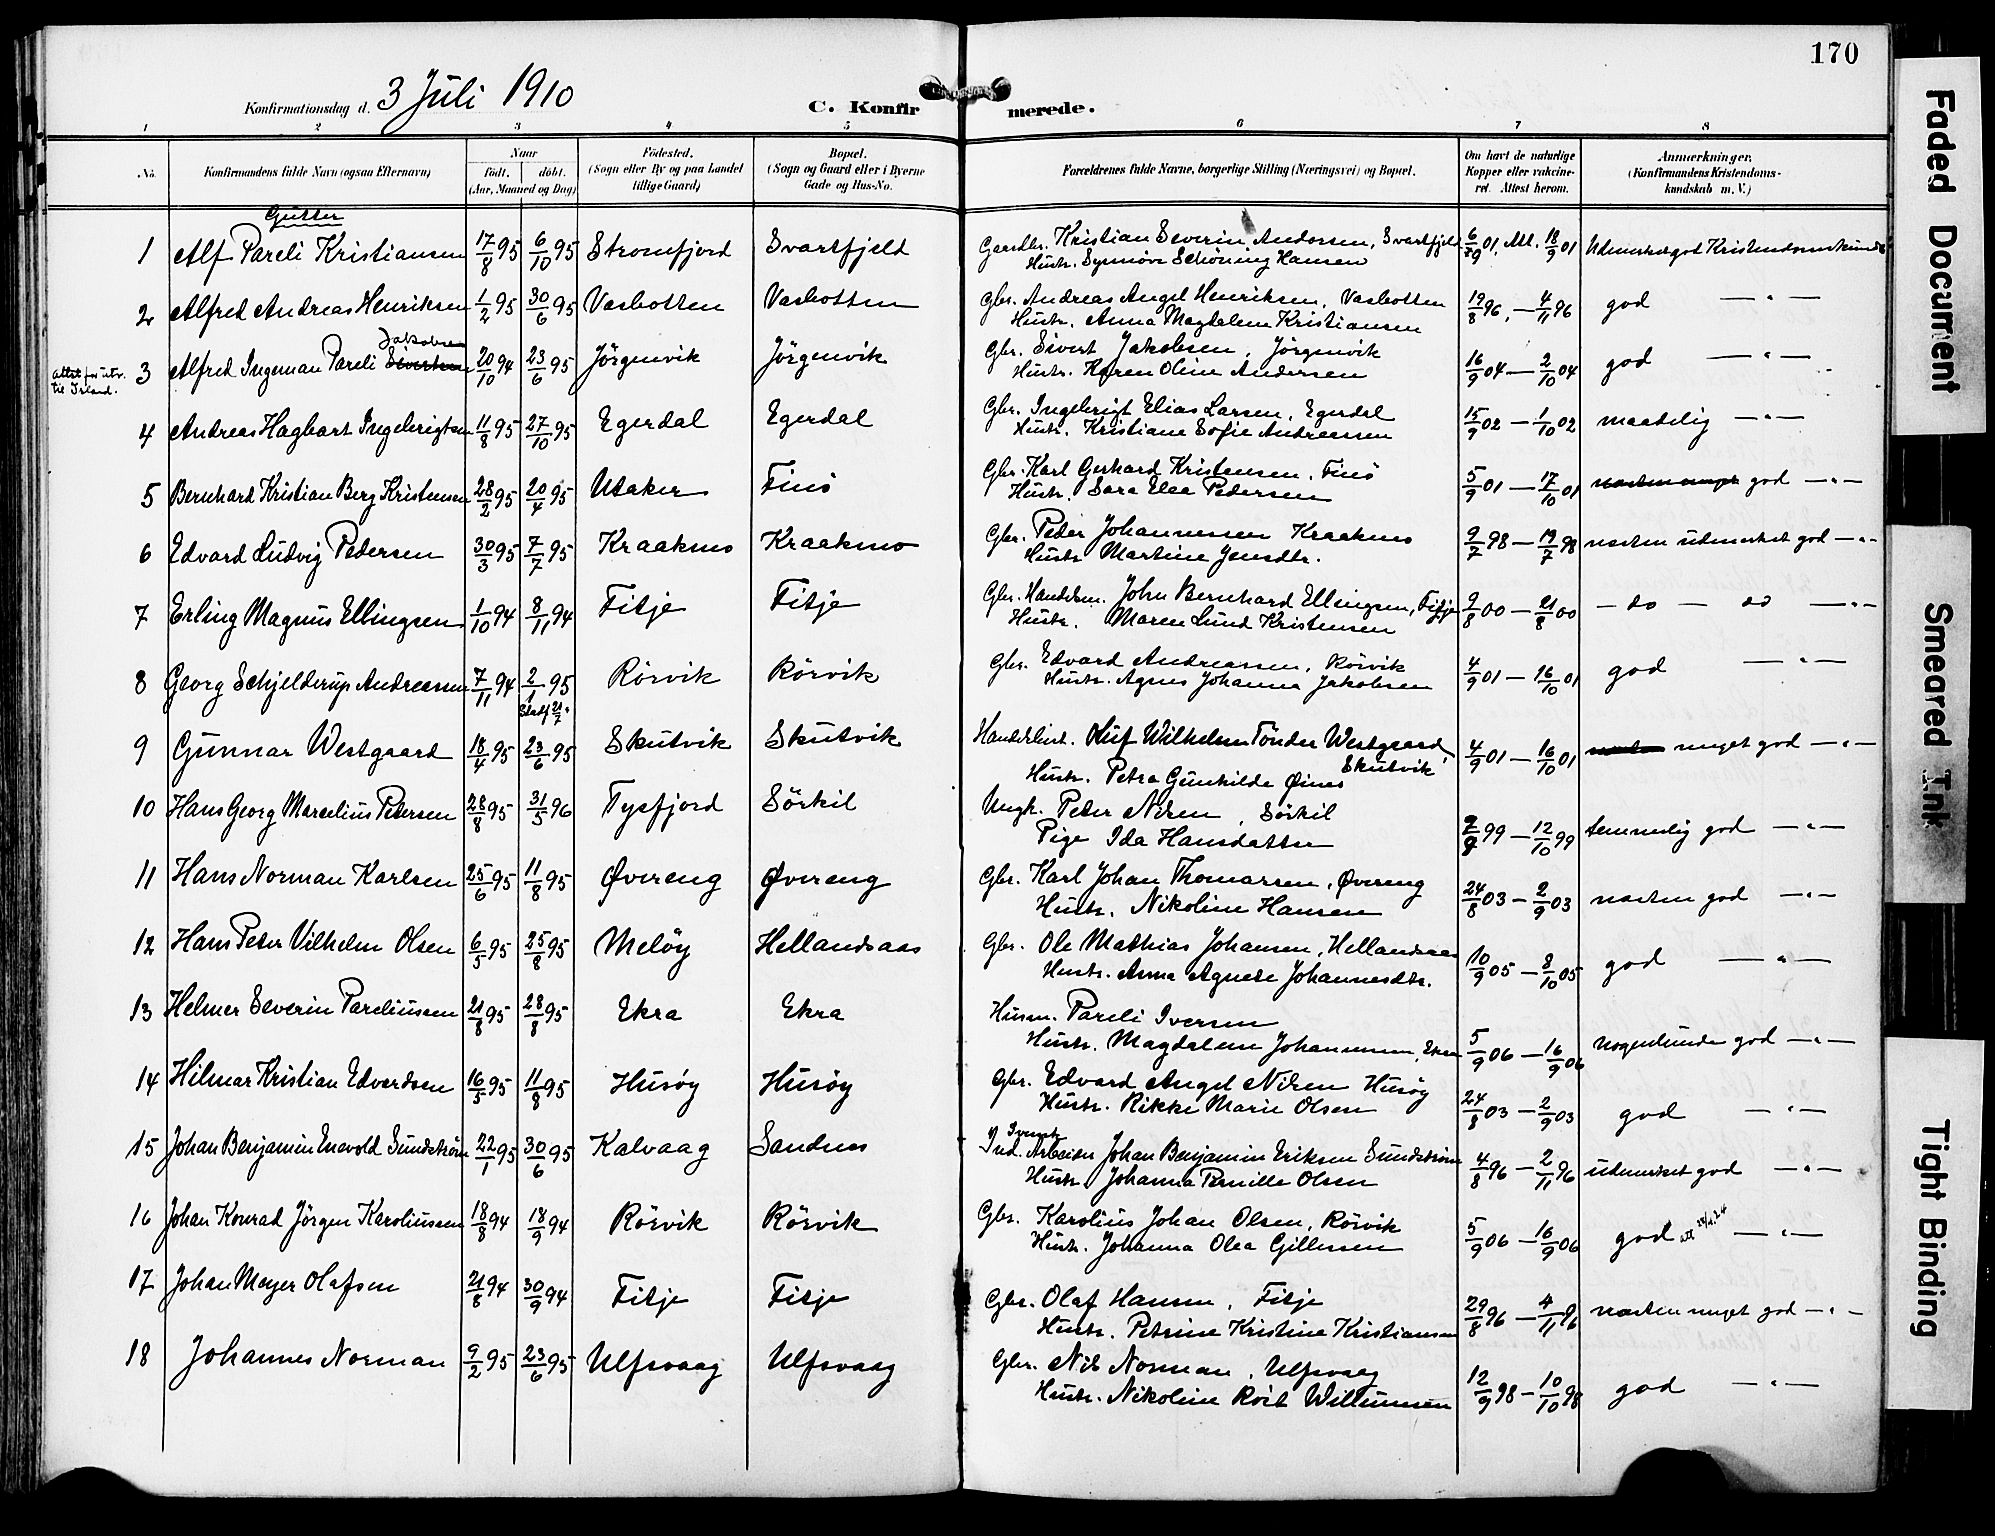 170
Konfirmationsdag d. 3 Juli 1910
C. Konfirmerede.
1 2 3 4 5 6 7 8
No. Konfirmandens fulde Navn (ogsaa Efternavn) Naar födt. döbt. (Aar, Maaned og Dag) Födested. (Sogn eller By og paa Landet tillige Gaard) Bopæl. (Sogn og Gaard eller i Byerne Gade og Hus-No. Forældrenes fulde Navne, borgerlige Stilling (Næringsvei) og Bopæl. Om havt de naturlige Kopper eller vakcineret. Attest herom. Anmerkninger. (Konfirmandens Kristendomskundskab m. V.)
Gutter
1 Alf Pareli Kristiansen 17/8 95 6/10 95 Stromfjord Svartfjeld Kristian Severin Anderssen, Svartfjeld 6/9 01. Att. 18/9 01 Udmerket god Kristendomskundsk
Hustr. Synnöve Schöning Hansen
2 Alfred Andreas Henriksen 1/2 95 30/6 95 Vasbotten Vasbotten Gbr. Andreas Angel Henriksen, Vasbotten 19/8 96. — 4/11 96 god — " —
Hustr. Anna Magdalena Kristiansen
Jakobsen
3 Alfred Ingeman Pareli Sivertsen 20/10 94 23/6 95 Jörgenvik Jörgenvik Gbr. Sivert Jakobsen, Jörgenvik 16/9 04 — 2/10 04 god — " —
Attest for utv. til Irland.
Hustr. Karen Oline Andersen
4 Andreas Hagbart Ingebrigtsen 11/8 95 27/10 95 Egerdal Egerdal Gbr. Ingebrigt Elias Larsen, Egerdal 15/9 02 — 1/10 02 maadelig — " —
Hustr. Kristiane Sofie Andreassen
5 Bernhard Kristian Berg Kristensen 28/2 95 20/4 95 Utaker Finö Gbr. Karl Gerhard Kristensen, Finö 5/9 01 — 17/10 01 næsten meget god — " —
Hustr. Sara Elea Pedersen
6 Edvard Ludvig Pedersen 30/3 95 7/7 95 Kraakmo Kraakmo Gbr. Peder Johannesen Kraakmo 9/7 98 — 19/7 98 næsten udmerket god — " —
Hustr Martine Jensdtr.
7 Erling Magnus Ellingsen 1/10 94 8/11 94 Fitje Fitje Gbr. Handelsm. John Bernhard Ellingsen, Fitje 9/8 00 — 21/8 00 — do — do — " —
Hustr. Maren Lund Kristensen
8 Georg Schjelderup Andreassen 7/11 94 2/1 95 Rörvik Rörvik Gbr. Edvard Andreassen, Rörvik 4/9 01 — 16/10 01 god — " —
Stadf 21/7
Hustr. Agnes Johanna Jakobsen
9 Gunnar Westgaard 18/4 95 23/6 95 Skutvik Skutvik Handelsbest. Oluf Wilhelm Tönder Westgaard, Skutvik 4/9 01 — 16/10 01 næsten meget god — " —
Hustr. Petra Gunhilde Øines
10 Hans Georg Marcelius Petersen 28/8 95 31/5 96 Tysfjord Sörkil Ungk. Peter Nilsen, Sörkil 7/9 99 — 12/10 99 temmelig god — " —
Pige Ida Hansdatter
11 Hans Norman Karlsen 25/6 95 11/8 95 Øvereng Øvereng Gbr. Karl Johan Thomassen, Øvereng 24/8 03 — 2/9 03 næsten god — " —
Hustr. Nikoline Hansen
12 Hans Peter Vilhelm Olsen 6/5 95 25/8 95 Melöy Hellandsaas Gbr. Ole Mathias Johansen, Hellandsaas 10/9 05 — 8/10 05 god — " —
Hustr. Anna Agnete Johannesdtr.
13 Helmer Severin Pareliussen 21/8 95 28/8 95 Ekra Ekra Husm. Pareli Iversen 5/9 06 — 16/9 06 nogenlunde god — " —
Hustr. Magdalena Johannessen, Ekra
14 Hilmar Kristian Edvardsen 16/5 95 11/8 95 Husöy Husöy Gbr. Edvard Angel Nilsen Husöy 24/8 03 — 2/9 03 god — " —
Hustr. Rikke Marie Olsen
15 Johan Benjamin Enevold Sundström 22/1 95 30/6 95 Kalvaag Sandnes Ind. Svensk Arbeider Johan Benjamin Eriksen Sundström 4/8 96 — 2/11 96 udmerket god — " —
Hustr. Johanna Pernille Olsen
16 Johan Konrad Jörgen Karoliussen 18/8 94 18/9 94 Rörvik Rörvik Gbr. Karolius Johan Olsen, Rörvik 5/9 06 — 16/9 06 god — " —
Hustr. Johanna Olea Gillessen
17 Johan Meyer Olafsen 21/8 94 30/9 94 Fitje Fitje Gbr. Olaf Hansen, Fitje 29/8 96 — 4/11 96 næsten meget god — " —
Hustr. Petrine Kristine Kristiansen
18 Johannes Norman 9/2 95 23/6 95 Ulfsvaag Ulfsvaag Gbr. Nils Norman, Ulfsvaag 12/9 98 — 10/10 98 god — " —
Hustr. Nikoline Röst Willumsen
Faded Document
Smeared Ink
Tight Binding